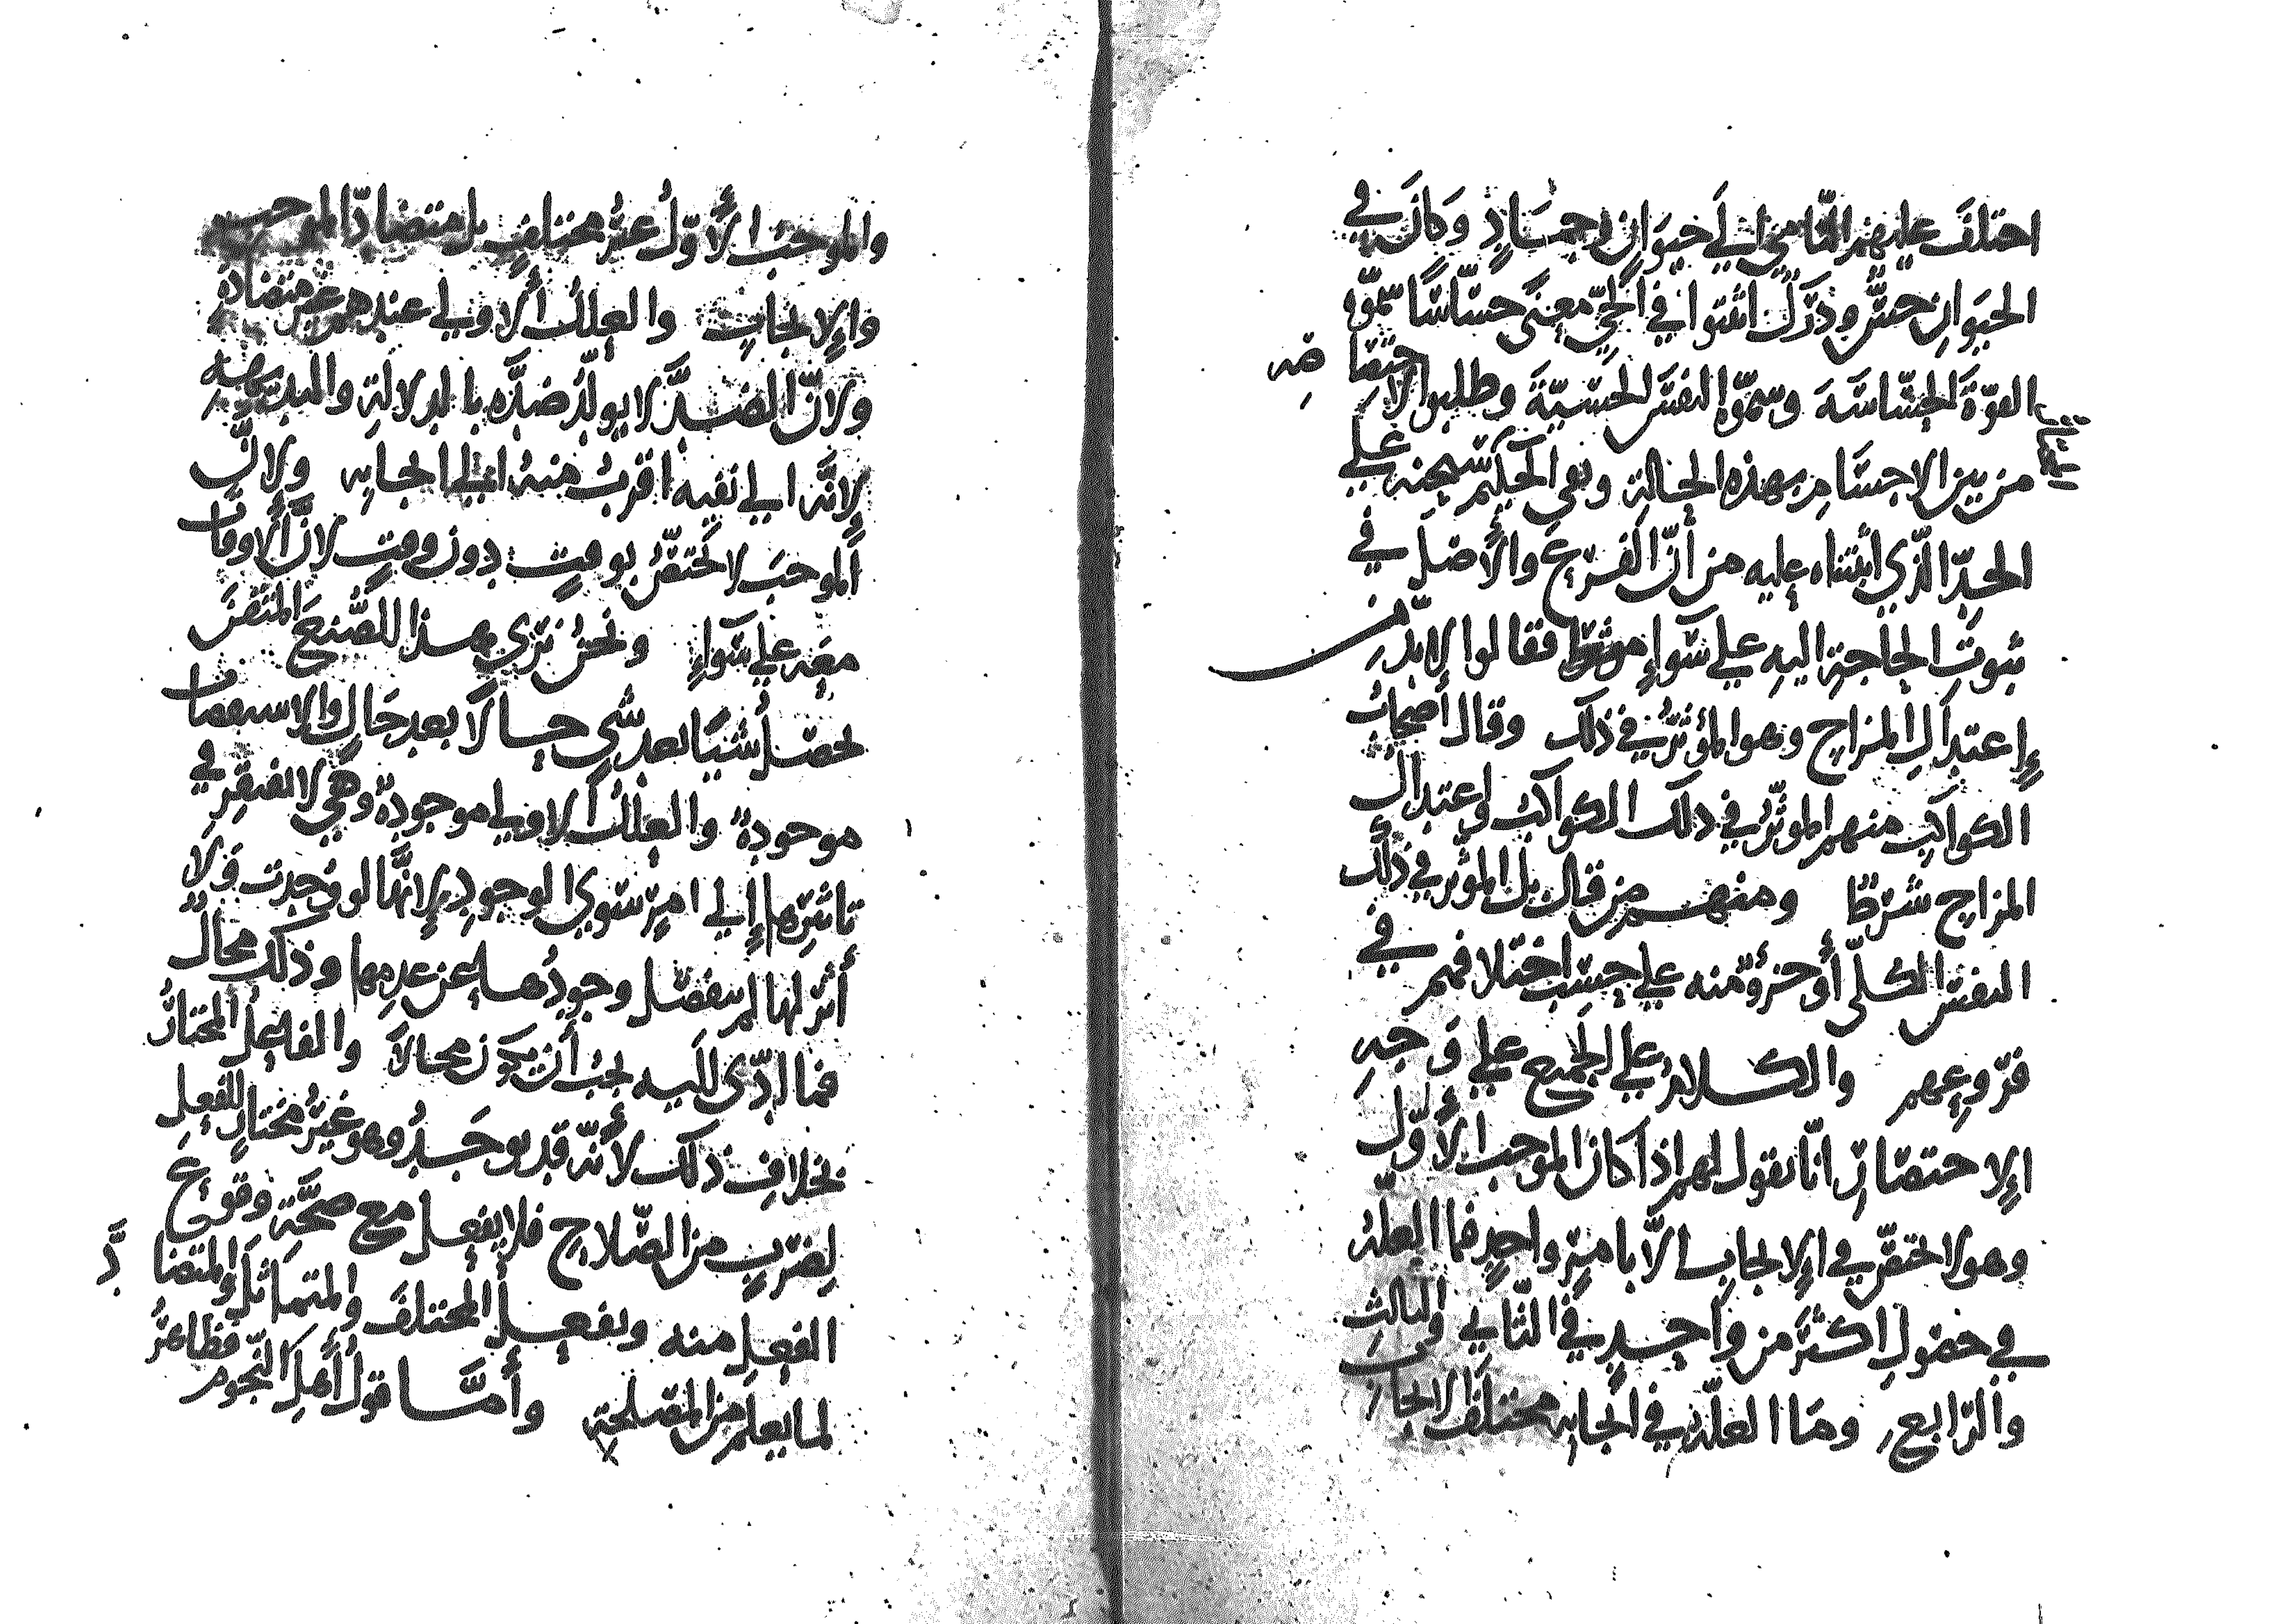 اختلف عليهم النامي الى حيوان وجماد وكان في
الحيوان حس ودرك اثبتوا في الحي معنى حساسا سموه
القوة الحساسة وسموه النفس الحسية وطلبوا لاختصاصه
من بين الاجسام بهذه الحالة ونفي الحكيم سبحنه على
الحد الذي اثبتناه عليه من أن الفرع والأصل في
ثبوت الحاجة اليه على سواء موثرا فقالوا لا بد من
إعتدال المزاج وهو المؤثر في ذلك وقال أصحاب
الكواكب منهم الموثر في ذلك الكواكب واعتدال
المزاج شرط ومنهم من قال بل الموثر في ذلك
النفس الكلي أو جزؤ منه على حسب اختلافهم في
فروعهم والكلام على الجميع على وجه
الإختصار انا نقول لهم اذا كان الموجب الأول
وهو لا يختص في الإيجاب الا بامر واحد فما العلة
في حصول اكثر من واحد في الثاني والثالث
والرابع وما العلة في ايجابه مختلف الايجاب
والموجب الأول غير مختلف بل متضاد الموجب
والإيجاب والعلل الأولى عندهم غير متضادة
ولان الضد لا يولد ضده بالدلالة والبديهة
لانه الى نفيه اقرب منه الى ايجابه ولان
الموجب لا يختص بوقت دون وقت لان الأوقات
معه على سواء ونحن نرى هذا الصنع المتقن
يحصل شيا بعد شي حالا بعد حال والاسقصات
موجودة والعلل الاولى موجودة وهي لا تفتقر في
تاثيرها إلى امر سوى الوجود لانها لو وجدت ولا
أثر لها لم ينفصل وجودها عن عدمها وذلك محال
فما ادى اليه يجب أن يكون محالا والفاعل المختار
بخلاف ذلك لأنه قد يوجد وهو غير مختار للفعل
لضرب من الصلاح فلا يفعل مع صحة وقوع
الفعل منه ويفعل المختلف والمتماثل والمتضاد
لما يعلم من المصلحة وأما قول أهل النجوم فظاهر